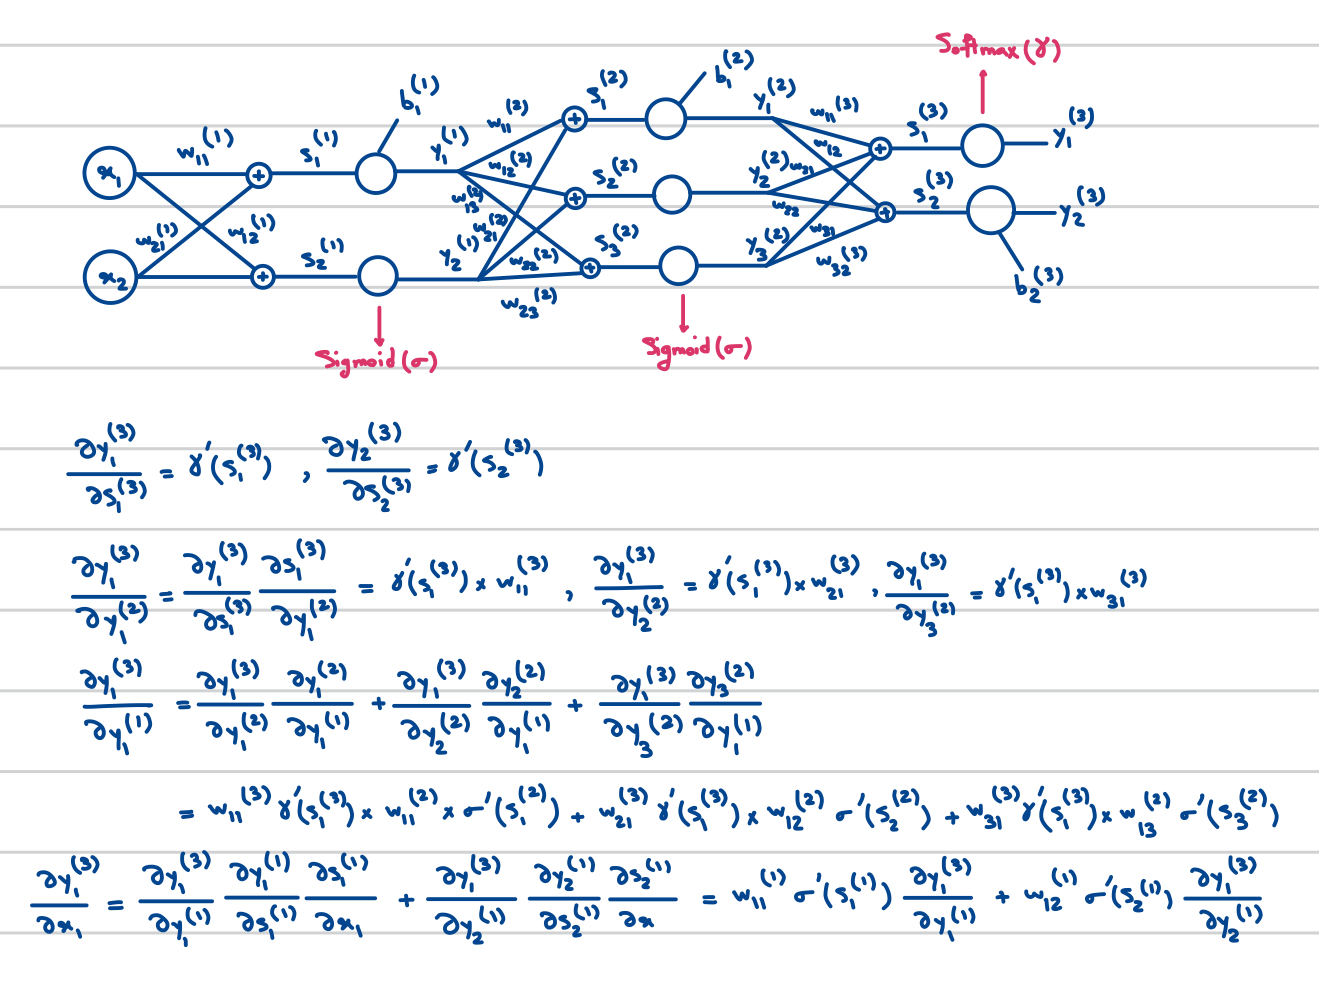 Softmax(γ)
b₁⁽¹⁾ b₁⁽²⁾
w₁₁⁽¹⁾ s₁⁽¹⁾ y₁⁽¹⁾ w₁₁⁽²⁾ s₁⁽²⁾ y₁⁽²⁾ w₁₁⁽³⁾ s₁⁽³⁾ y₁⁽³⁾
x₁ + + w₁₂⁽²⁾ w₁₂ +
w₁₃⁽²⁾ + s₂⁽²⁾ y₂⁽²⁾ w₂₁ s₂⁽³⁾ y₂⁽³⁾
w₂₁⁽¹⁾ w₁₂⁽¹⁾ w₂₁⁽²⁾ w₂₂ +
x₂ + s₂⁽¹⁾ y₂⁽¹⁾ w₃₂⁽²⁾ + s₃⁽²⁾ y₃⁽²⁾ w₃₁
w₂₃⁽²⁾ w₃₂⁽³⁾ b₂⁽³⁾
Sigmoid(σ) Sigmoid(σ)
∂y₁⁽³⁾/∂s₁⁽³⁾ = γ′(s₁⁽³⁾) , ∂y₂⁽³⁾/∂s₂⁽³⁾ = γ′(s₂⁽³⁾)
∂y₁⁽³⁾/∂y₁⁽²⁾ = ∂y₁⁽³⁾/∂s₁⁽³⁾ ∂s₁⁽³⁾/∂y₁⁽²⁾ = γ′(s₁⁽³⁾) × w₁₁⁽³⁾ , ∂y₁⁽³⁾/∂y₂⁽²⁾ = γ′(s₁⁽³⁾) × w₂₁⁽³⁾ , ∂y₁⁽³⁾/∂y₃⁽²⁾ = γ′(s₁⁽³⁾) × w₃₁⁽³⁾
∂y₁⁽³⁾/∂y₁⁽¹⁾ = ∂y₁⁽³⁾/∂y₁⁽²⁾ ∂y₁⁽²⁾/∂y₁⁽¹⁾ + ∂y₁⁽³⁾/∂y₂⁽²⁾ ∂y₂⁽²⁾/∂y₁⁽¹⁾ + ∂y₁⁽³⁾/∂y₃⁽²⁾ ∂y₃⁽²⁾/∂y₁⁽¹⁾
= w₁₁⁽³⁾ γ′(s₁⁽³⁾) × w₁₁⁽²⁾ × σ′(s₁⁽²⁾) + w₂₁⁽³⁾ γ′(s₁⁽³⁾) × w₁₂⁽²⁾ σ′(s₂⁽²⁾) + w₃₁⁽³⁾ γ′(s₁⁽³⁾) × w₁₃⁽²⁾ σ′(s₃⁽²⁾)
∂y₁⁽³⁾/∂x₁ = ∂y₁⁽³⁾/∂y₁⁽¹⁾ ∂y₁⁽¹⁾/∂s₁⁽¹⁾ ∂s₁⁽¹⁾/∂x₁ + ∂y₁⁽³⁾/∂y₂⁽¹⁾ ∂y₂⁽¹⁾/∂s₂⁽¹⁾ ∂s₂⁽¹⁾/∂x = w₁₁⁽¹⁾ σ′(s₁⁽¹⁾) ∂y₁⁽³⁾/∂y₁⁽¹⁾ + w₁₂⁽¹⁾ σ′(s₂⁽¹⁾) ∂y₁⁽³⁾/∂y₂⁽¹⁾